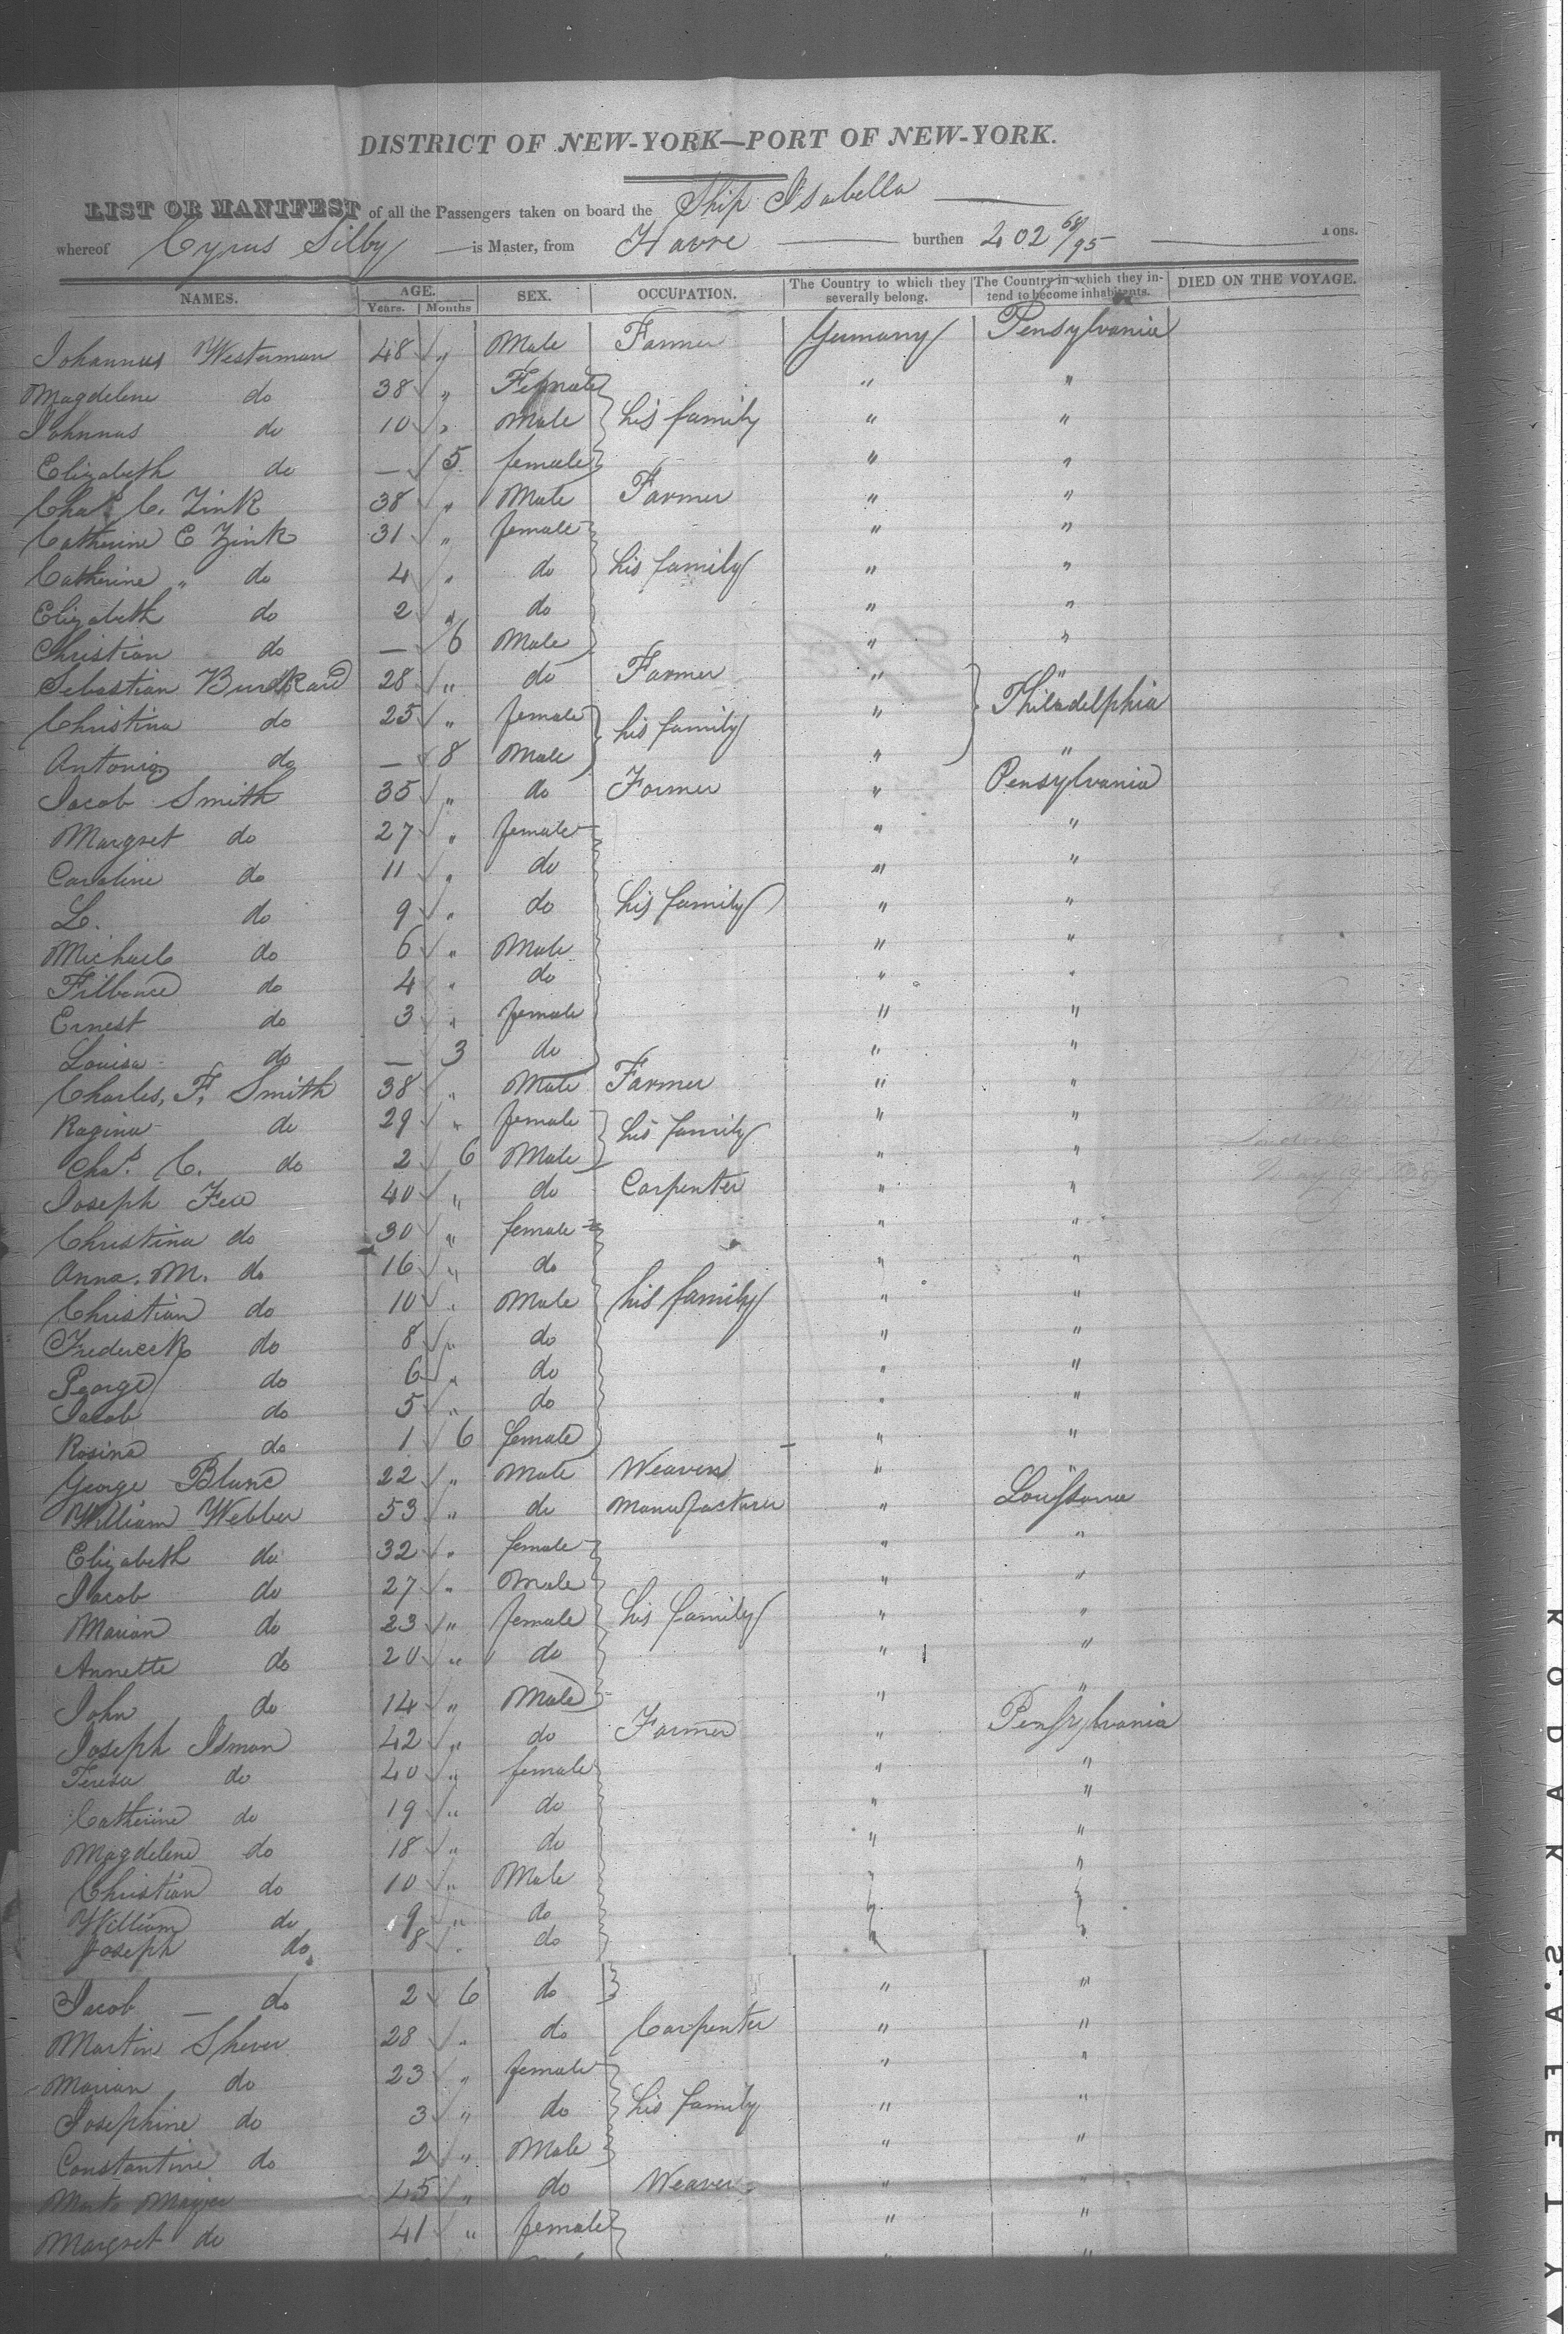 DISTRICT OF NEW-YORK—PORT OF NEW-YORK.
LIST OR MANIFEST of all the Passengers taken on board the Ship Isabella
whereof Cyrus Silby is Master, from Havre burthen 402 68/95 Tons.
NAMES. AGE. Years. Months SEX. OCCUPATION. The Country to which they severally belong. The Country in which they intend to become inhabitants. DIED ON THE VOYAGE.
Johannus Westerman 48 " Male Farmer Germany Pensylvania
Magdelene do 38 " Female " "
Johnnus do 10 " Male his family " "
Elizabeth do — 5 female " "
Chas. C. Zink 38 " Male Farmer " "
Catherine E Zink 31 " female " "
Catherine " do 4 " do his family " "
Elizabeth do 2 " do " "
Christian do — 6 Male " "
Sebastian Burkkard 28 " do Farmer " "
Christina do 25 " female his family " Philadelphia
Antonio do — 8 Male " "
Jacob Smith 35 " do Farmer " Pensylvania
Margret do 27 " female " "
Caroline do 11 " do " "
L. do 9 " do his family " "
Michael do 6 " Male " "
do 4 " do " "
Ernest do 3 " female " "
Louisa do — 3 do " "
Charles, F. Smith 38 " Male Farmer " "
Ragina do 29 " female his family " "
Chas. C. do 2 6 Male " "
Joseph Few 40 " do Carpenter " "
Christina do 30 " female " "
Anna. M. do 16 " do " "
Christian do 10 " Male his family " "
Frederick do 8 " do " "
George do 6 " do " "
Jacob do 5 " do " "
Rosina do 1 6 female " "
George Blanc 22 " Male Weaver " "
William Webber 53 " do Manufacturer " Louissana
Elizabeth do 32 " female " "
Jacob do 27 " Male " "
Marian do 23 " female his family " "
Annette do 20 " do " "
John do 14 " Male " "
Joseph Isman 42 " do Farmer " Penssylvania
Teresa do 40 " female " "
Catherine do 19 " do " "
Magdelene do 18 " do " "
Christian do 10 " Male " "
William do 9 " do
Joseph do 8 " do "
Jacob — do 2 6 do " "
Martin Sherer 28 " do Carpenter " "
Marian do 23 " female " "
Josephine do 3 " do his family " "
Constantine do 2 " Male " "
Mayer 45 " do Weaver " "
Margret do 41 " female " "
KODAK S.A.F.E.T.Y